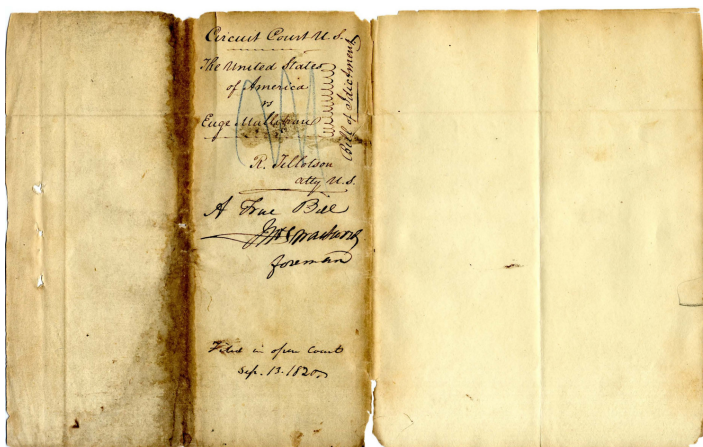 Circuit Court U.S.
The United States
of America
vs
Euge
Bill of Indictment
R. Tillotson
atty U.S.
A True Bill
foreman
Filed in open Court
Sep. 13. 1820